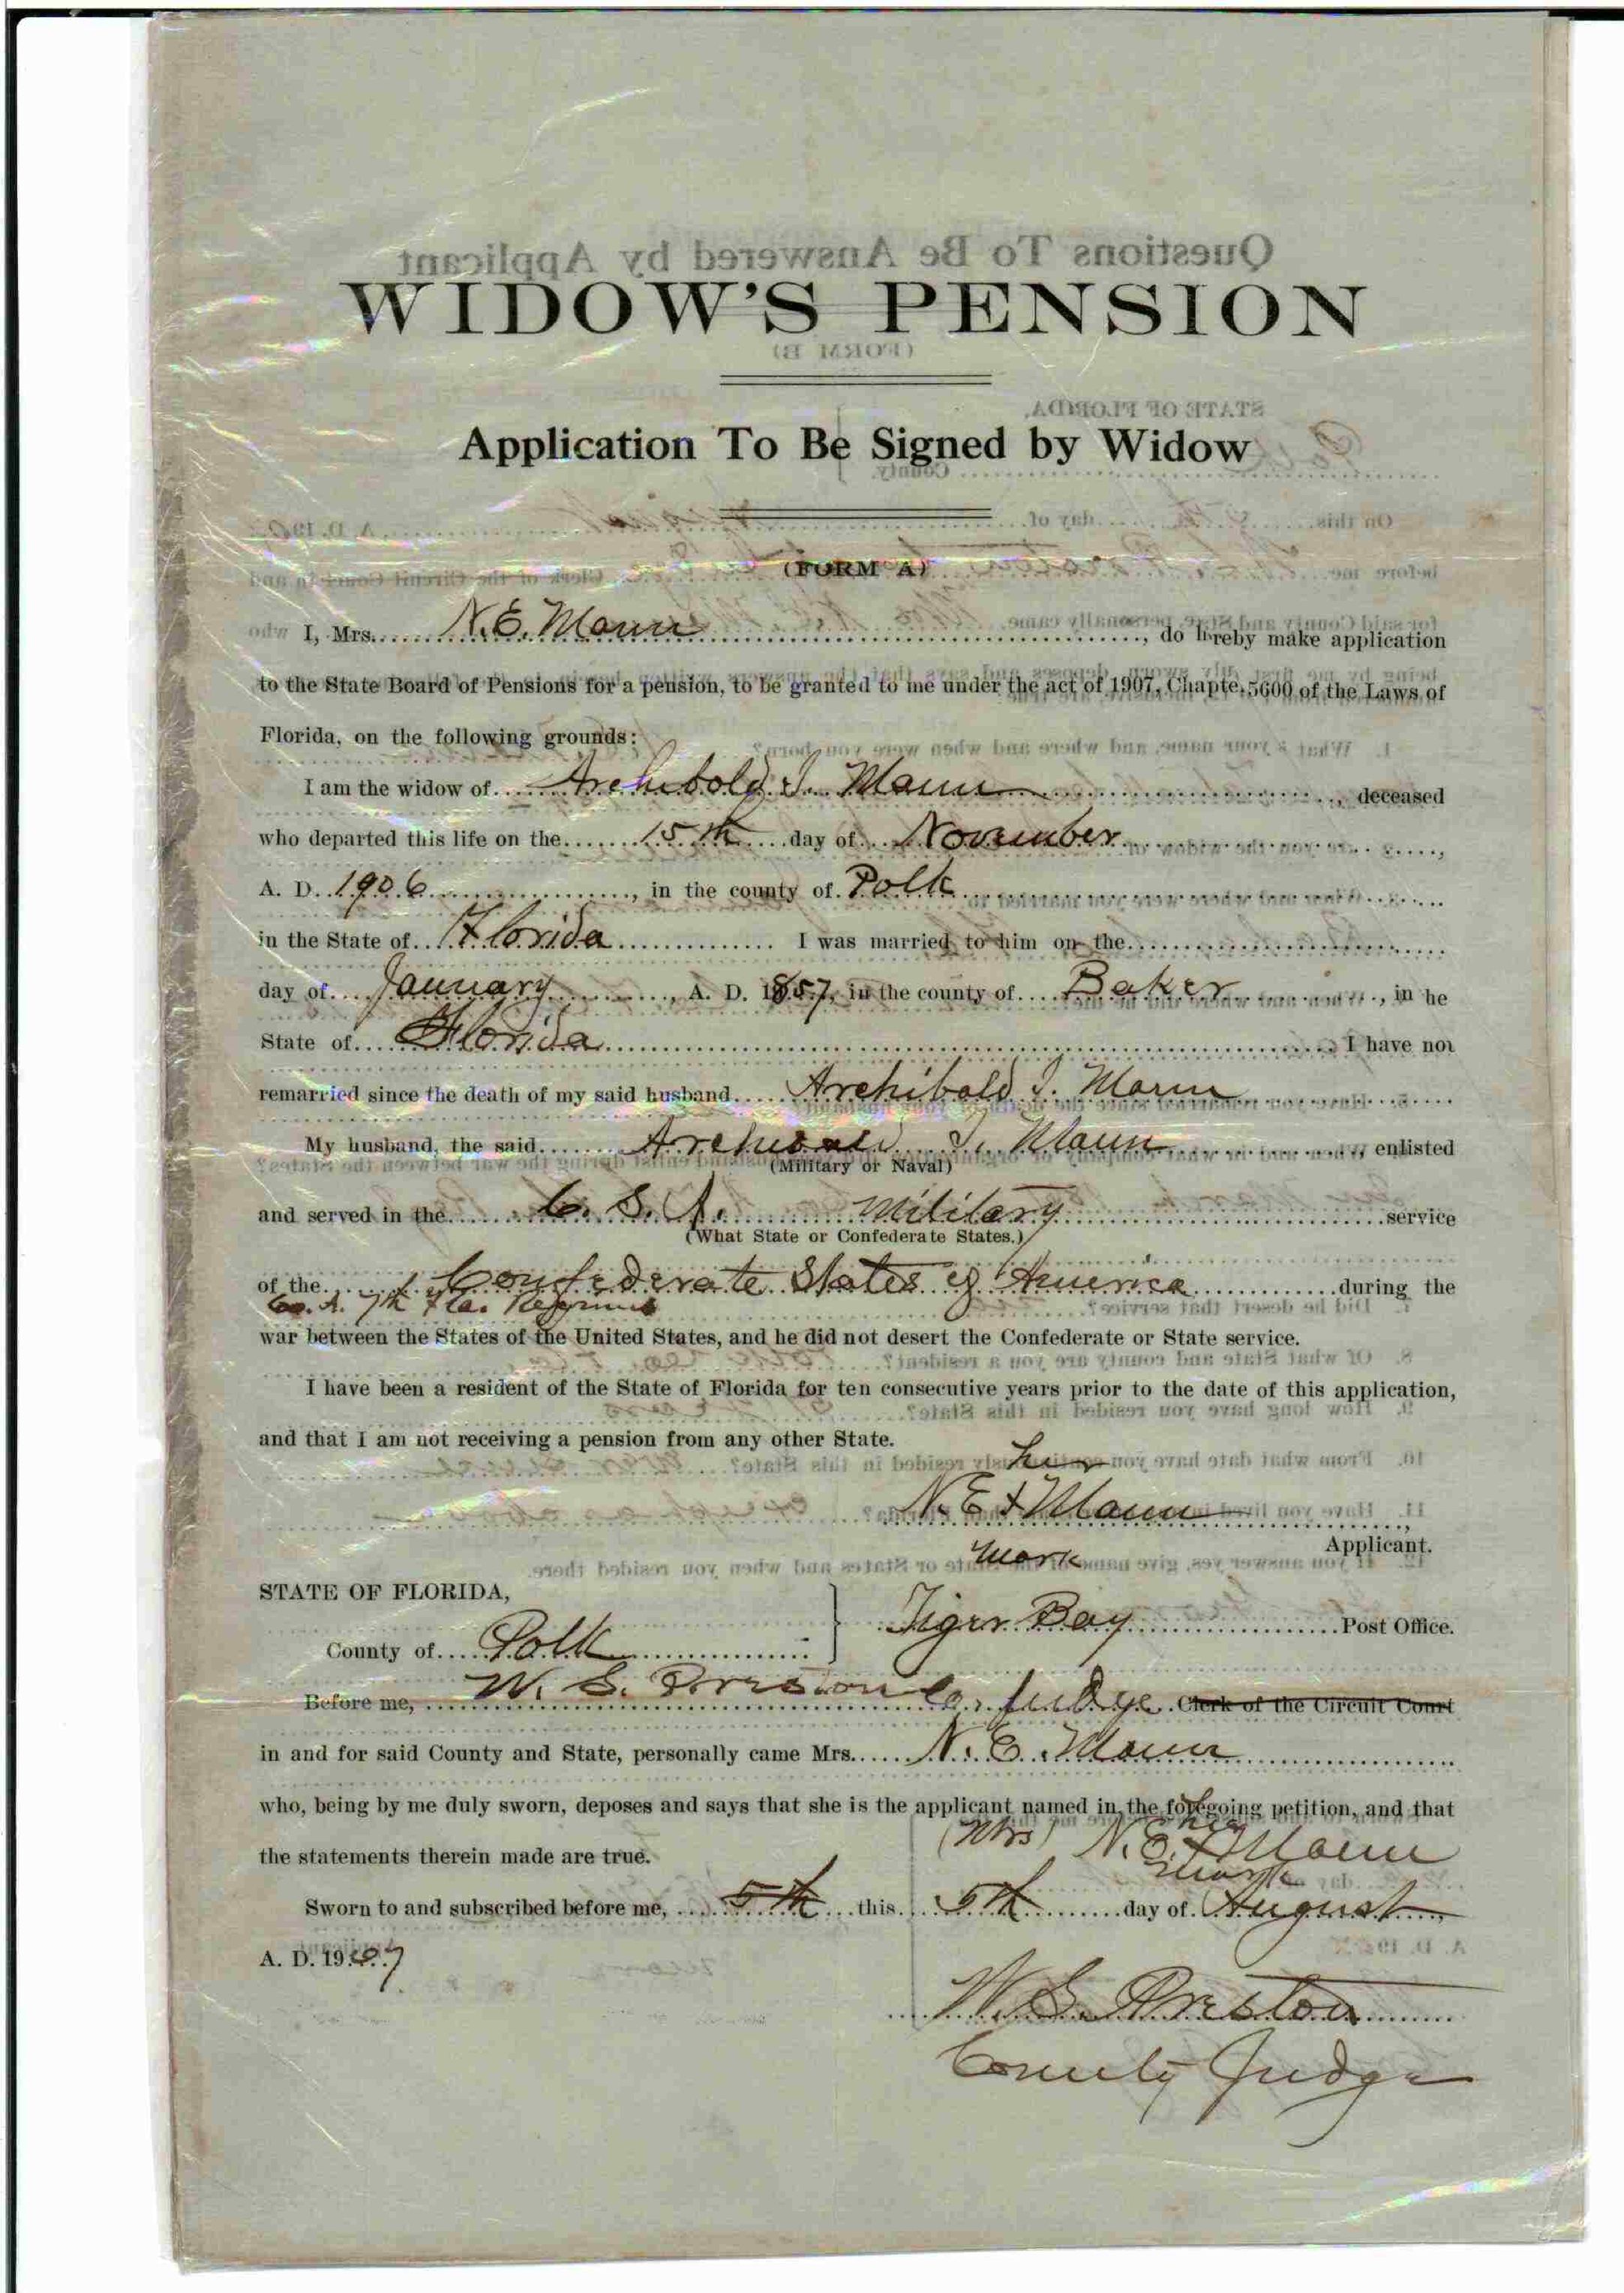 WIDOW'S PENSION
Application To Be Signed by Widow
(FORM A)
I, Mrs. N. E. Mann, do hereby make application
to the State Board of Pensions for a pension, to be granted to me under the act of 1907, Chapter 5600 of the Laws of
Florida, on the following grounds:
I am the widow of Archibold I. Mann, deceased
who departed this life on the 15th day of November,
A. D. 1906, in the county of Polk
in the State of Florida I was married to him on the
day of January, A. D. 1857, in the county of Baker, in he
State of Florida I have not
remarried since the death of my said husband Archibold I. Mann
My husband, the said Archibald I. Mann, enlisted
(Military or Naval)
and served in the C. S. A. Military service
(What State or Confederate States.)
of the Confederate States of America during the
Co. A. 7th Fla. Regiment
war between the States of the United States, and he did not desert the Confederate or State service.
I have been a resident of the State of Florida for ten consecutive years prior to the date of this application,
and that I am not receiving a pension from any other State.
her
N. E. X Mann,
mark Applicant.
STATE OF FLORIDA,
Tiger Bay Post Office.
County of Polk
Before me, W. S. Preston Co. Judge Clerk of the Circuit Court
in and for said County and State, personally came Mrs. N. E. Mann
who, being by me duly sworn, deposes and says that she is the applicant named in the foregoing petition, and that
the statements therein made are true.
her
(Mrs) N. E. X Mann
mark
Sworn to and subscribed before me, 5th this 5th day of August,
A. D. 1907
W. S. Preston
County Judge